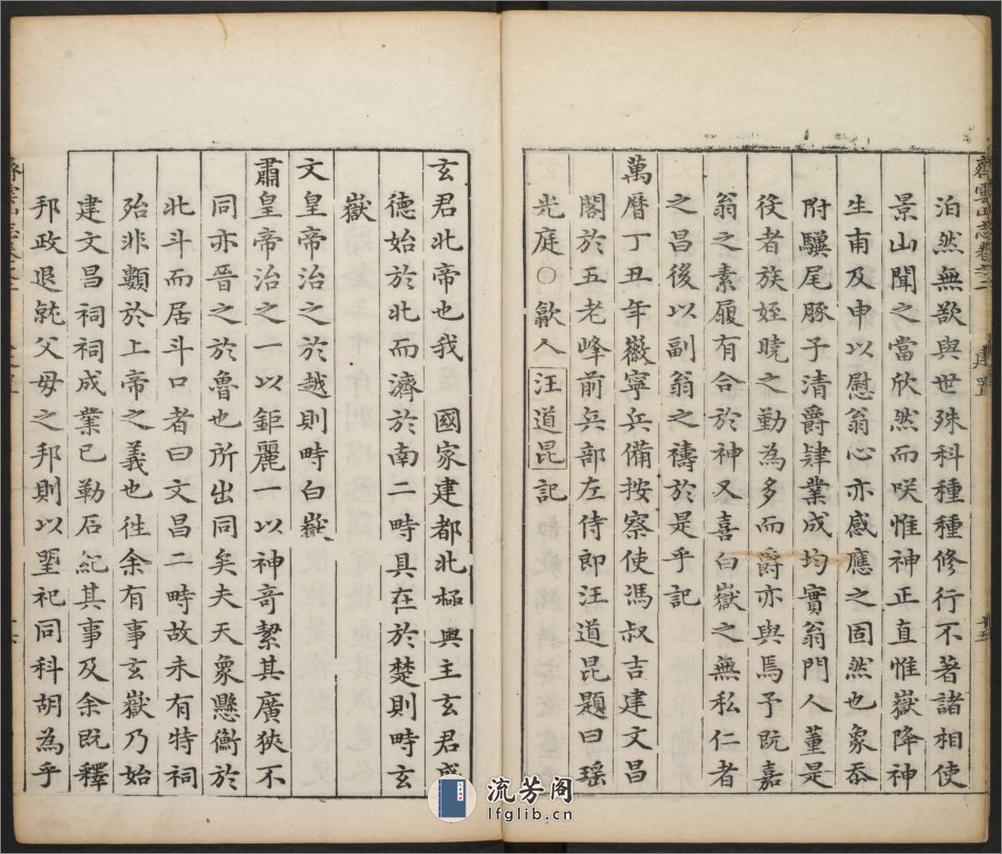 齊雲山志卷之二
建置
泊然無欲與世殊科種種修行不著諸相使
景山聞之當欣然而咲惟神正直惟嶽降神
生甫及申以慰翁心亦感應之固然也象忝
附驥尾豚子清爵肄業成均實翁門人董是
役者族姪曉之勤為多而爵亦與焉予既嘉
翁之素履有合於神又喜白嶽之無私仁者
之昌後以副翁之禱於是乎記
萬曆丁丑年徽寧兵備按察使馮叔吉建文昌
閣於五老峰前兵部左侍郎汪道昆題曰瑶
光庭〇歙人汪道昆記
玄君北帝也我 國家建都北極與王玄君盛
德始於北而濟於南二時具在於楚則時玄
嶽
文皇帝治之於越則時白嶽
肅皇帝治之一以鉅麗一以神奇絜其廣狹不
同亦晉之於魯也所出同矣夫天象懸衡於
北斗而居斗口者曰文昌二時故未有特祠
殆非顴於上帝之義也徃余有事玄嶽乃始
建文昌祠祠成業已勒石紀其事及余既釋
邦政退就父母之邦則以朢祀同科胡為乎
齊雲山志卷之二
流芳阁
lfglib.cn